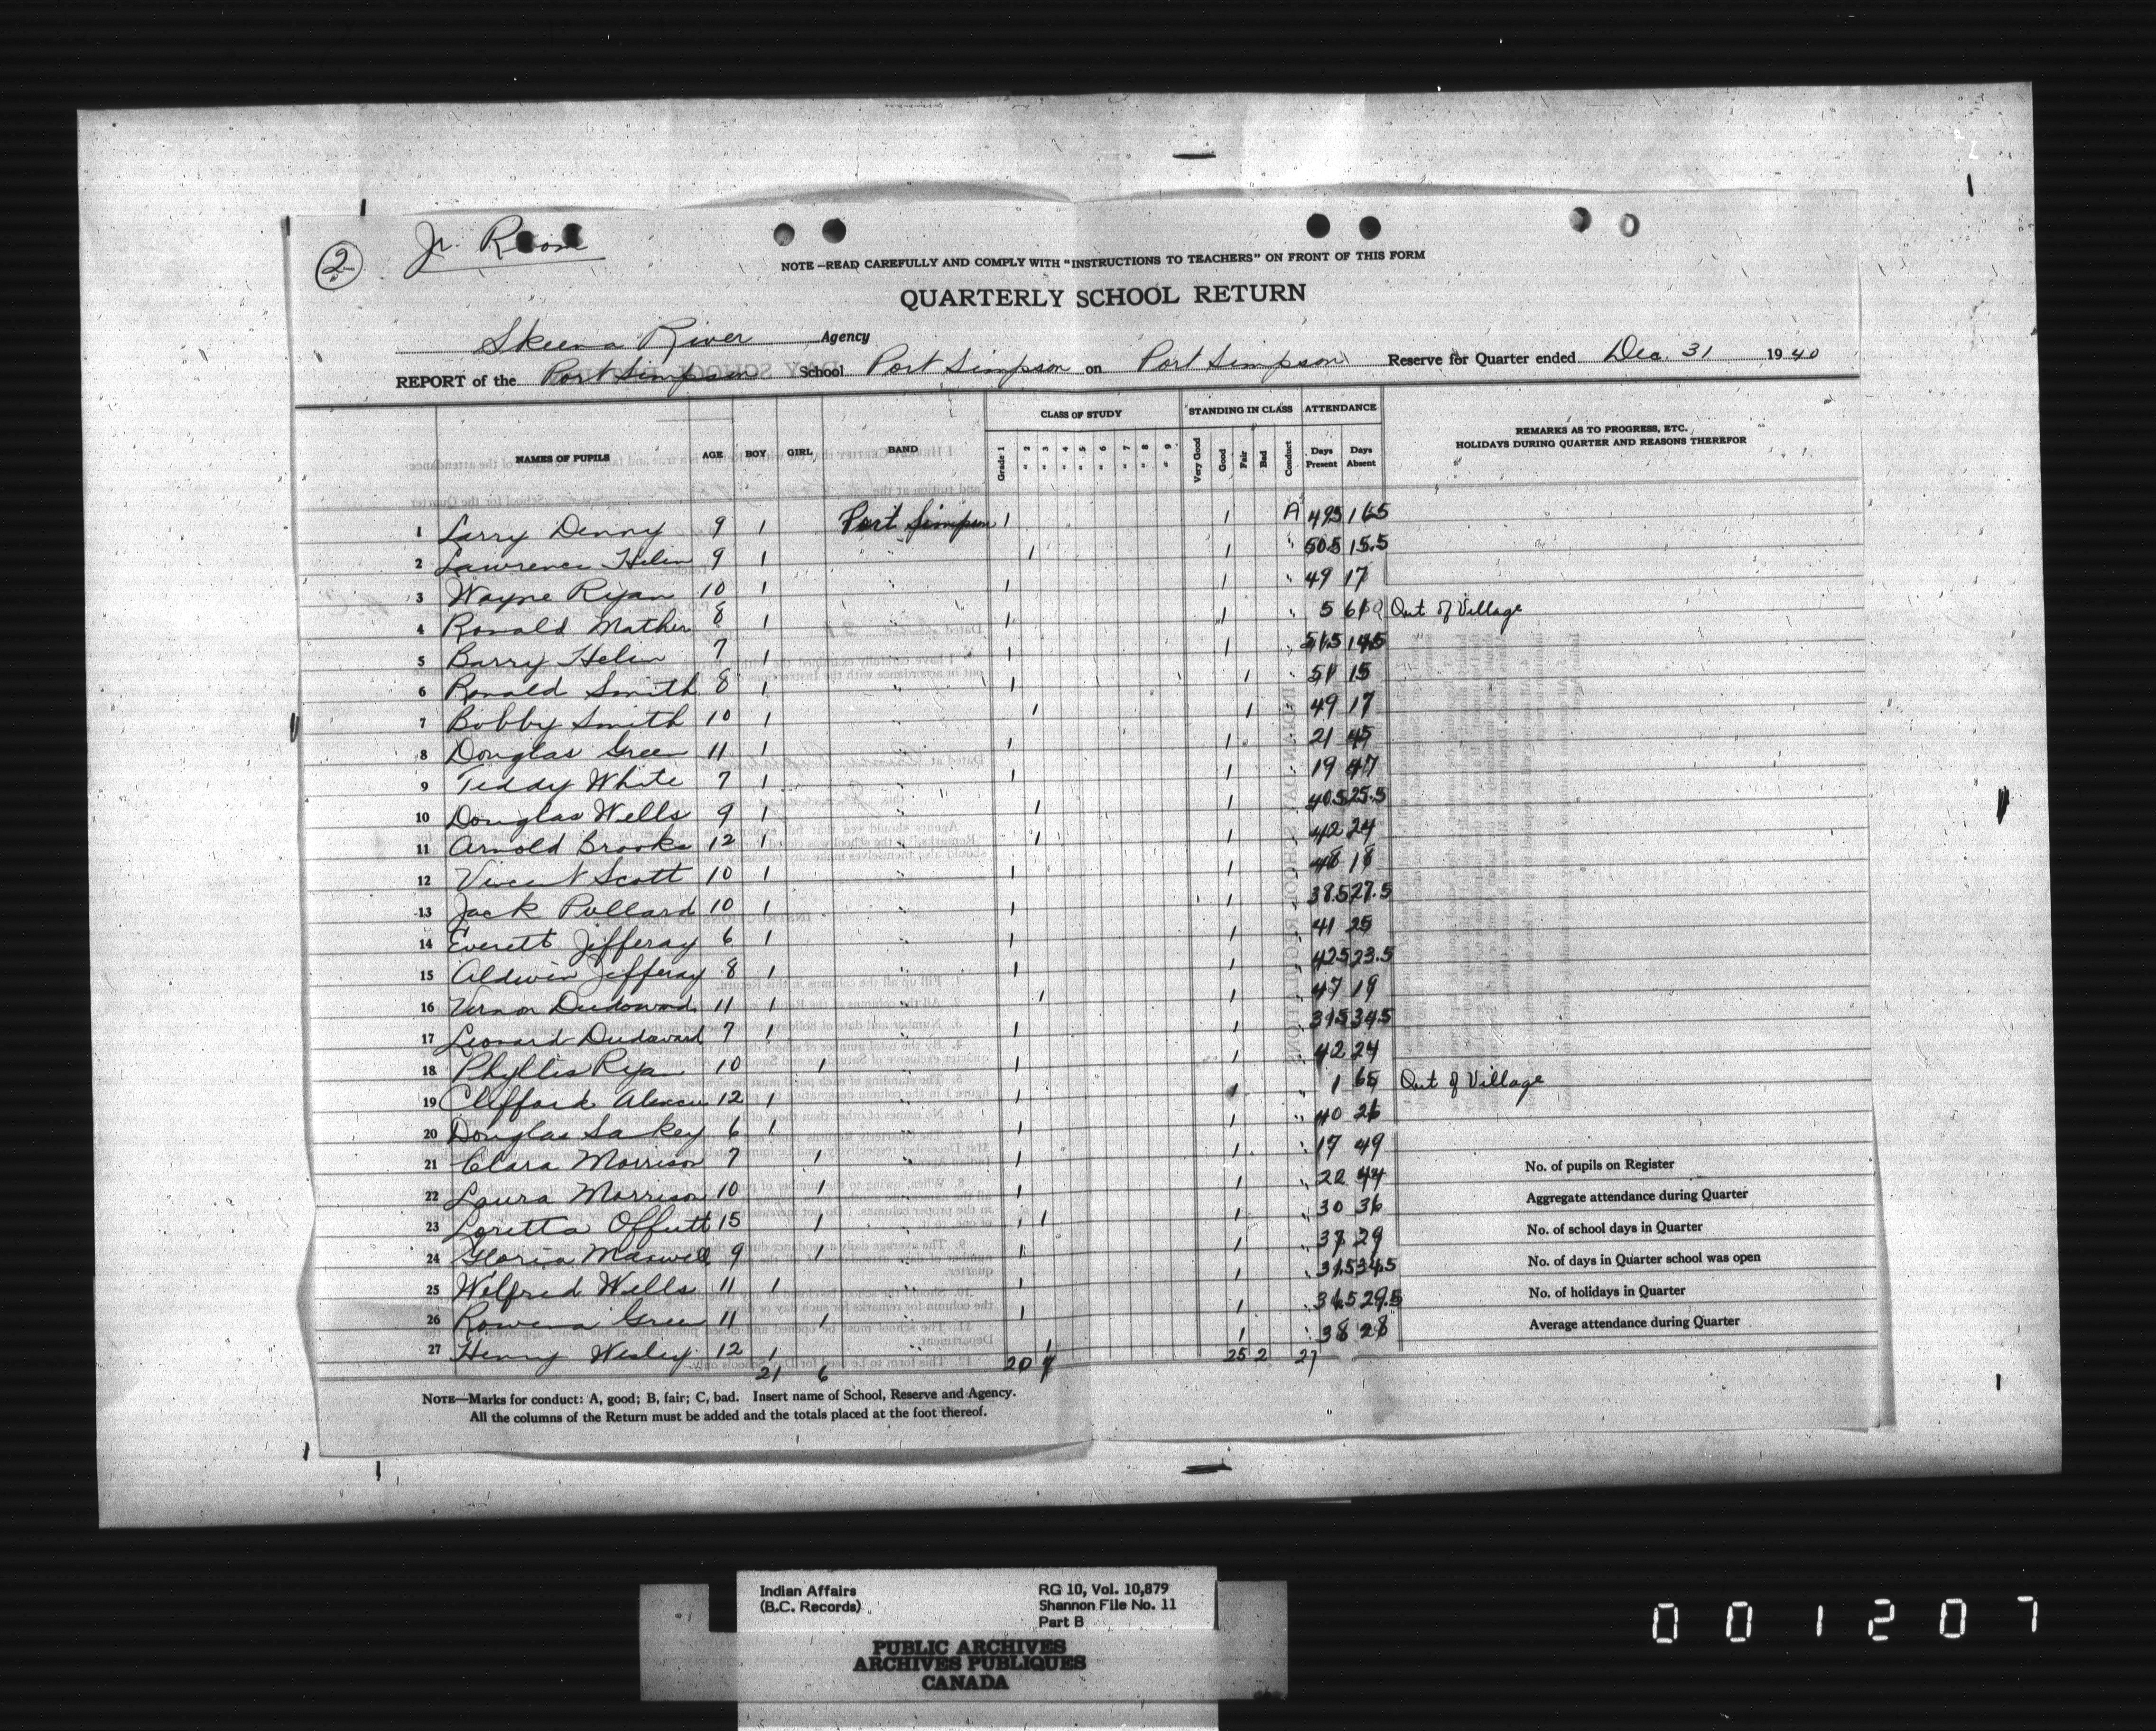 2
Jr. Room
NOTE—READ CAREFULLY AND COMPLY WITH "INSTRUCTIONS TO TEACHERS" ON FRONT OF THIS FORM
QUARTERLY SCHOOL RETURN
Skeena River Agency
REPORT of the Port Simpson School Port Simpson on Port Simpson Reserve for Quarter ended Dec. 31 1940
NAMES OF PUPILS AGE BOY GIRL BAND CLASS OF STUDY STANDING IN CLASS ATTENDANCE REMARKS AS TO PROGRESS, ETC.
HOLIDAYS DURING QUARTER AND REASONS THEREFOR
Grade 1 " 2 " 3 " 4 " 5 " 6 " 7 " 8 " 9 Very Good Good Fair Bad Conduct Days Present Days Absent
1 Larry Denny 9 1 Port Simpson 1 1 A 49.5 16.5
2 Lawrence Helin 9 1 " 1 1 " 50.5 15.5
3 Wayne Ryan 10 1 " 1 1 " 49 17
4 Ronald Mather 8 1 " 1 1 " 5 61 Out of Village
5 Barry Helin 7 1 " 1 1 " 51.5 14.5
6 Ronald Smith 8 1 " 1 1 " 51 15
7 Bobby Smith 10 1 " 1 1 " 49 17
8 Douglas Green 11 1 " 1 1 " 21 45
9 Teddy White 7 1 " 1 1 " 19 47
10 Douglas Wells 9 1 " 1 1 " 40.5 25.5
11 Arnold Brooks 12 1 " 1 1 " 42 24
12 Vincent Scott 10 1 " 1 1 " 48 18
13 Jack Pollard 10 1 " 1 1 " 38.5 27.5
14 Everett Jefferay 6 1 " 1 1 " 41 25
15 Aldwin Jefferay 8 1 " 1 1 " 42.5 23.5
16 Vernon Dudoward 11 1 " 1 1 " 47 19
17 Leonard Dudoward 7 1 " 1 1 " 31.5 34.5
18 Phyllis Ryan 10 1 " 1 1 " 42 24
19 Clifford 12 1 " 1 1 " 1 65 Out of Village
20 Douglas Sakey 6 1 " 1 1 " 40 26
21 Clara Morrison 7 1 " 1 1 " 17 49
22 Laura Morrison 10 1 " 1 1 " 22 44
23 Loretta Offutt 15 1 " 1 1 " 30 36
24 Gloria Maxwell 9 1 " 1 1 " 37 29
25 Wilfred Wells 11 1 " 1 1 " 31.5 34.5
26 Rowena Green 11 1 " 1 1 " 36.5 29.5
27 Henry Wesley 12 1 1 1 " 38 28
21 6 20 7 25 2 27
No. of pupils on Register
Aggregate attendance during Quarter
No. of school days in Quarter
No. of days in Quarter school was open
No. of holidays in Quarter
Average attendance during Quarter
NOTE—Marks for conduct: A, good; B, fair; C, bad. Insert name of School, Reserve and Agency.
All the columns of the Return must be added and the totals placed at the foot thereof.
Indian Affairs RG 10, Vol. 10,879
(B.C. Records) Shannon File No. 11
Part B
PUBLIC ARCHIVES
ARCHIVES PUBLIQUES
CANADA
001207